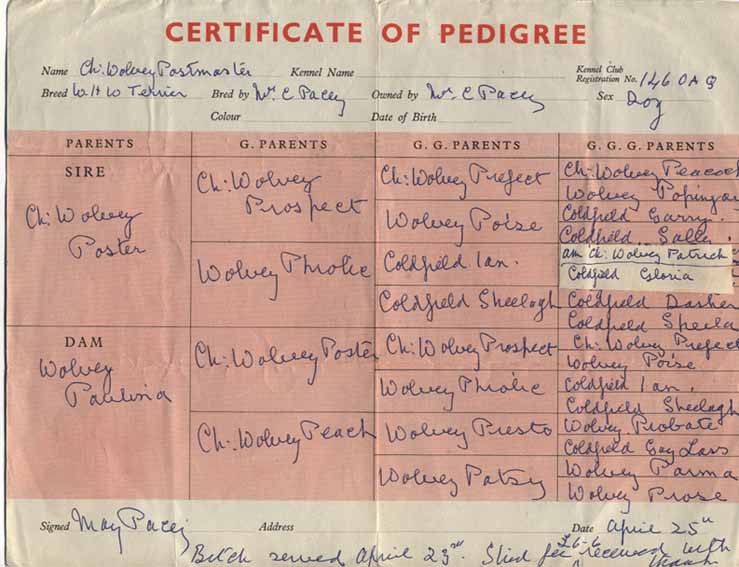 CERTIFICATE OF PEDIGREE
Name Ch: Wolvey Postmaster Kennel Name Kennel Club Registration No. 146 OAQ
Breed W H W Terrier Bred by Mrs C Pacey Owned by Mrs C Pacey Sex Dog
Colour Date of Birth
PARENTS G. PARENTS G. G. PARENTS G. G. G. PARENTS
SIRE
Ch: Wolvey
Poster
Ch: Wolvey
Prospect
Wolvey Phrolic
Ch: Wolvey Prefect
Wolvey Poise
Coldfield Ian.
Coldfield Sheelagh
Ch: Wolvey Peacock
Wolvey Popingay
Coldfield Garry.
Coldfield Sally.
am Ch: Wolvey Patrick
Coldfield Gloria
Coldfield Dasher
Coldfield Sheila
DAM
Wolvey
Paulina
Ch: Wolvey Poster
Ch: Wolvey Peach
Ch: Wolvey Prospect
Wolvey Phrolic
Wolvey Presto
Wolvey Patsy
Ch: Wolvey Prefect
Wolvey Poise
Coldfield Ian.
Coldfield Sheelagh
Wolvey Probate
Coldfield Gay Lass
Wolvey Parma
Wolvey Prose
Signed May Pacey Address Date April 25th
Bitch served April 23rd. Stud fee £6-6 received with
thanks